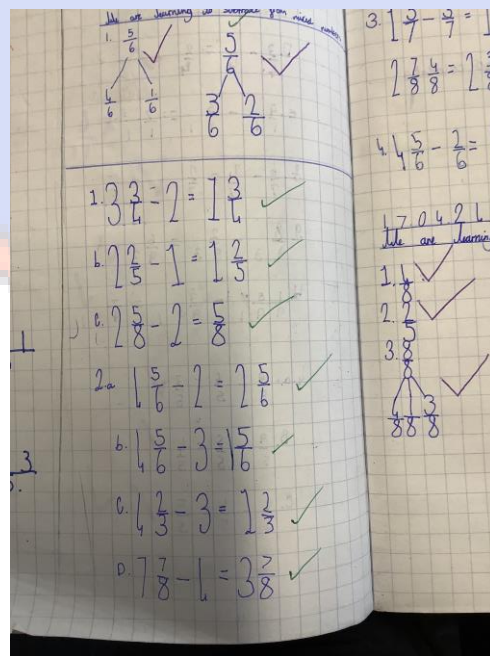 We are learning to subtract from mixed numbers.
1. 5/6
4/6 1/6
5/6
3/6 - 2/6
1. 3 3/4 - 2 = 1 3/4
b. 2 2/5 - 1 = 1 2/5
c. 2 5/8 - 2 = 5/8
2.a 4 5/6 - 2 = 2 5/6
b. 4 5/6 - 3 = 1 5/6
c. 4 2/3 - 3 = 1 2/3
D. 7 7/8 - 4 = 3 7/8
3. 1 3/7 - 3/7 = 1
2 7/8 4/8 = 2
4. 4 5/6 - 2/6 =
17.04.24
We are learning
2. 2/5
3. 8/8
4/8 1/8 3/8